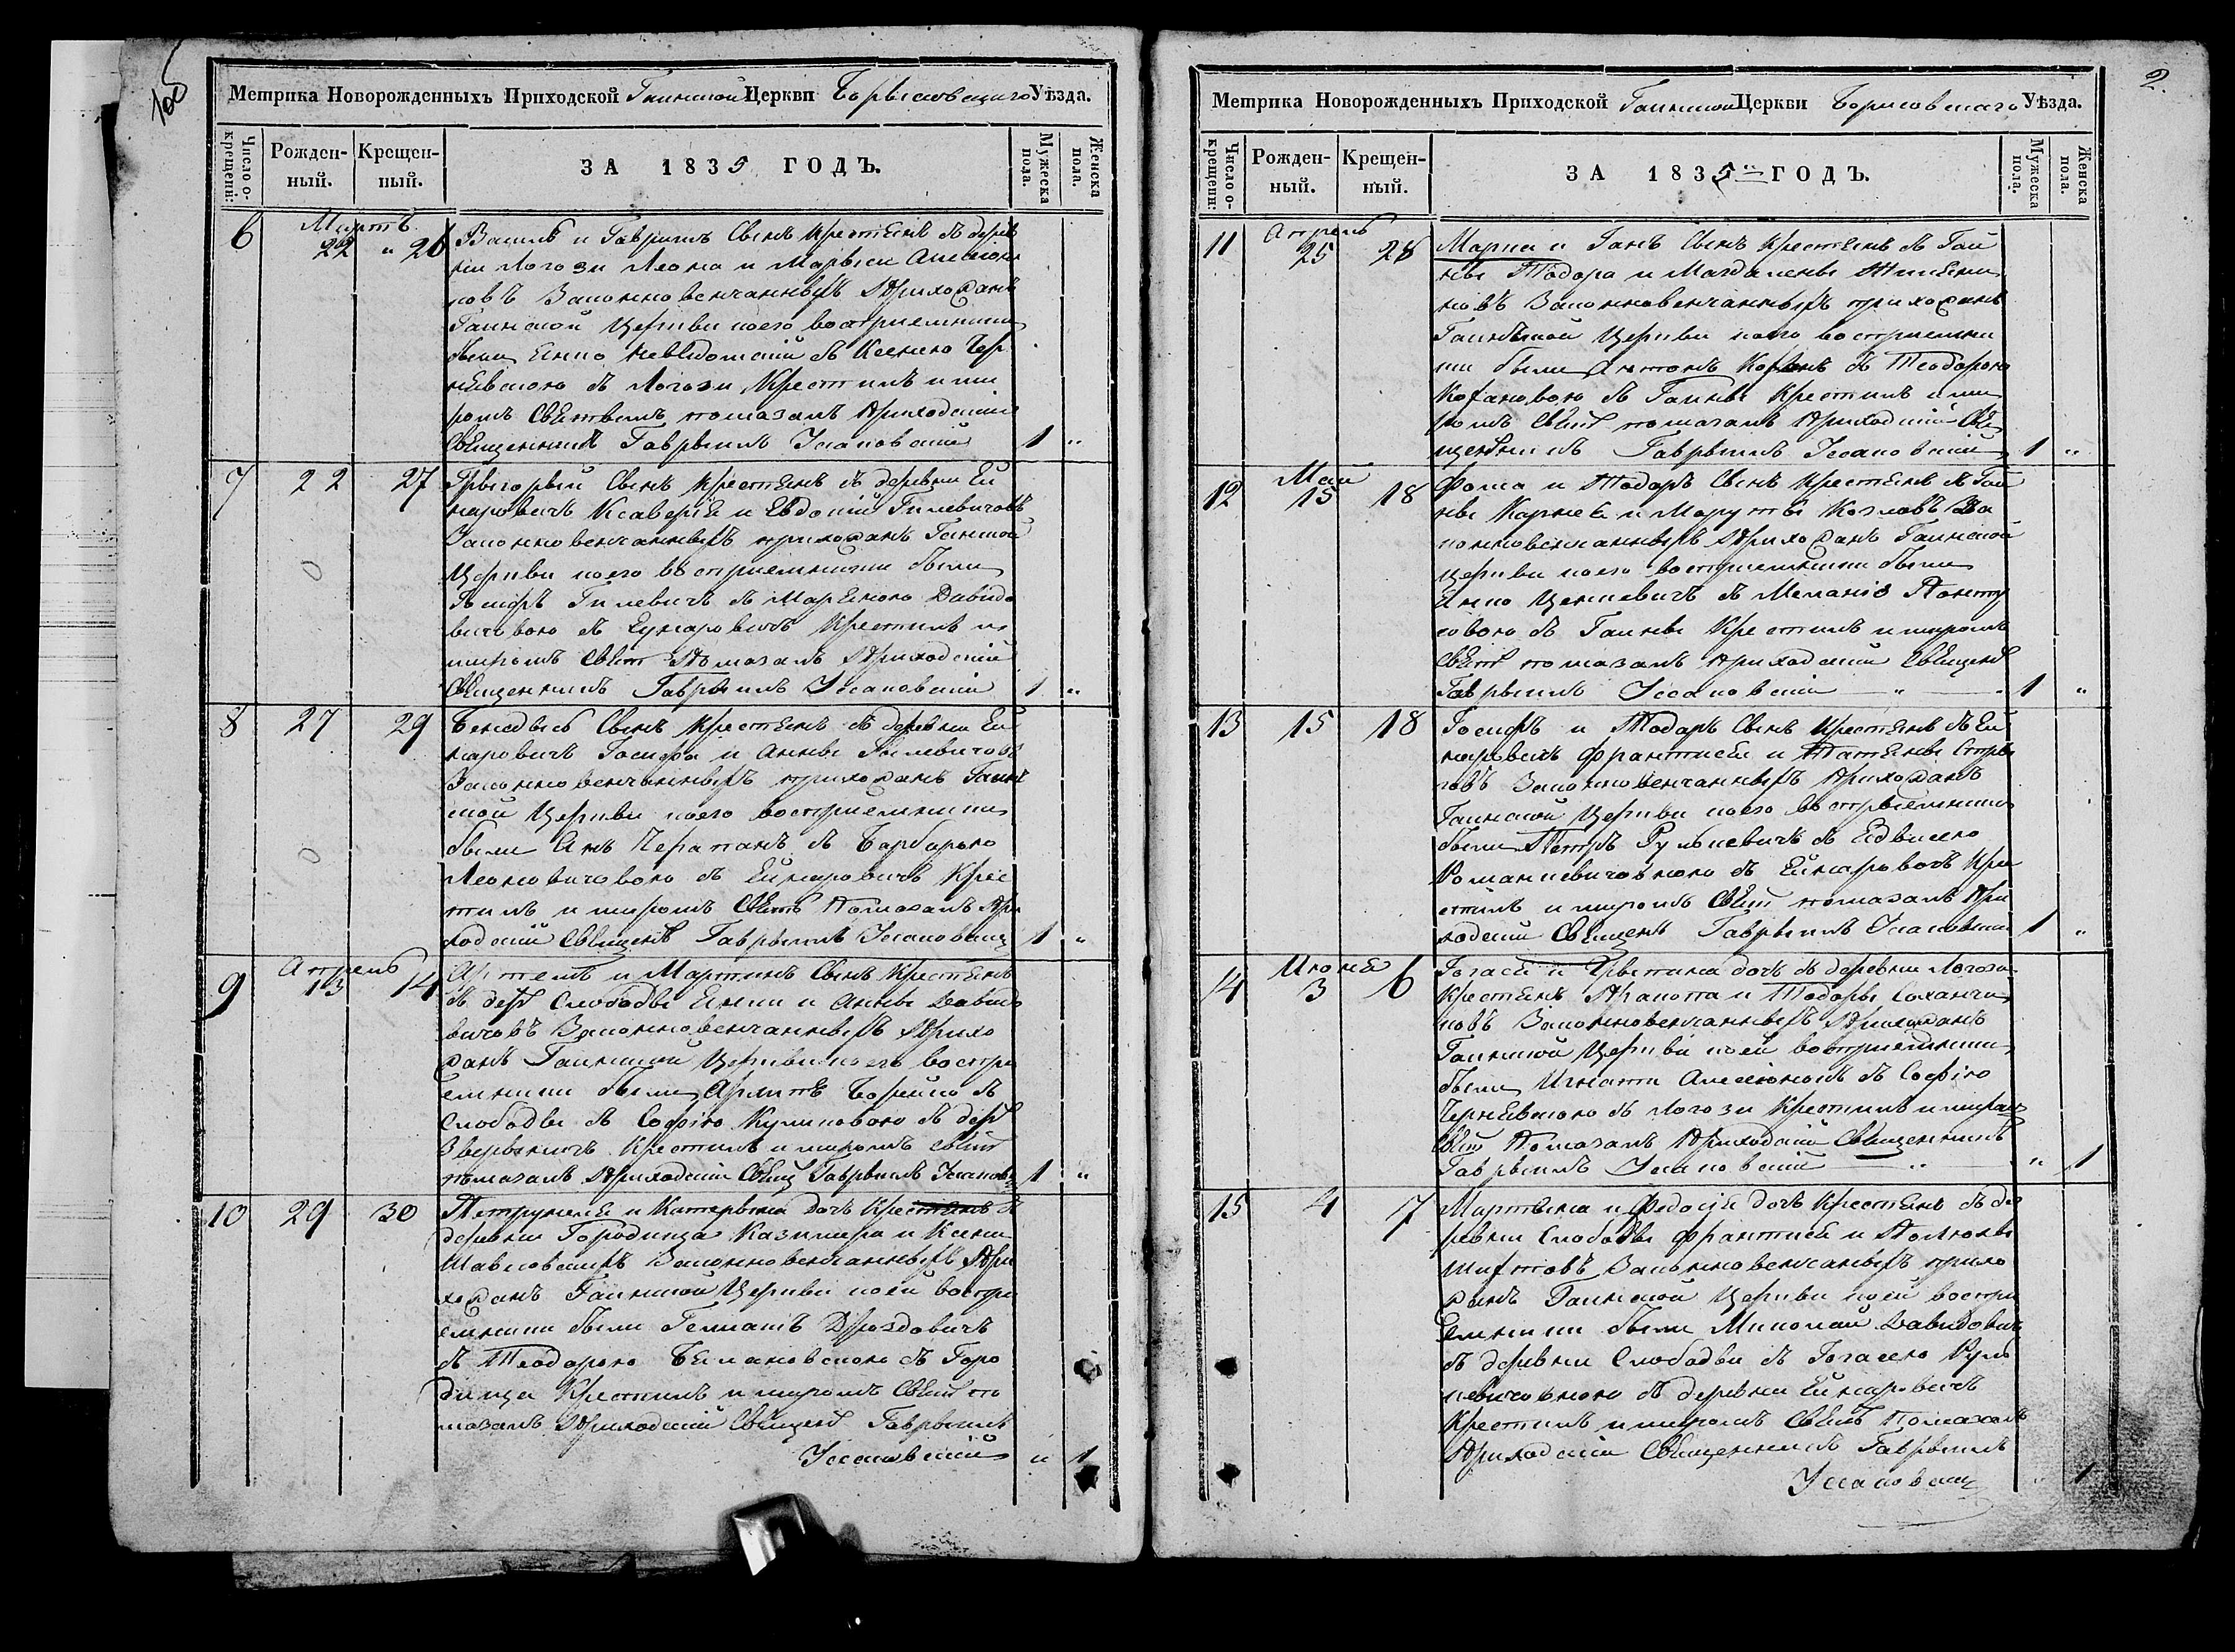 100
Метрика Новорожденныхъ Приходской Гаинской Церкви Борысовскаго Уѣзда.
Число о-крещені:
Рожден-ный.
Крещен-ный.
ЗА 1835 ГОДЪ.
Мужеска пола.
Женска пола.
Мартъ
6 22 „ 26 Василь и Гаврыилъ Сынъ крестьянъ съ дерев
ни Логози Леона и Марыси Алексіон
ковъ Законновенчанныхъ Прихожанъ
Гаинской Церкви коего восприемники
были Янко съ Ксенею Чер
невскою съ Логози Крестилъ и ми
ромъ Святымъ помазалъ Приходскій
Священникъ Гаврыилъ Усаковскій 1 „
7 22 27 Грыгорый Сынъ крестьянъ съ деревни Ей
наровичъ Ксаверія и Евдокіи Гилевичовъ
Законновенчанныхъ прихожанъ Гаинской
Церкви коего восприемники были
Іосифъ Гилевичъ съ Марьяною Давидо
вичевою съ Ейнаровичъ Крестилъ и
миромъ Свят Помазалъ Приходскій
Священникъ Гаврыилъ Усаковскій 1 „
8 27 29 Бенедыкъ Сынъ крестьянъ съ деревни Ей
наровичъ Іосифа и Анны Гилевичовъ
Законновенчанныхъ прихожанъ Гаин
ской Церкви коего восприемники
были Янъ Черапанъ съ Барбарою
Леоновичовою съ Ейнаровичъ Крес
тилъ и миромъ Свят Помазалъ При
ходскій Священ Гаврыилъ Усаковскій 1 „
Апрель
9 13 14 Артемъ и Мартинъ Сынъ Крестьянъ
съ дер Слободы Янки и Анны Давидо
вичовъ Законновенчанныхъ Прихо
жанъ Гаинской Церкви коего воспри
емники были Борейко съ
Слободы съ Софіею Куликовою съ дер
Зверынича Крестилъ и миромъ Свят
помазалъ Приходскій Свящ Гаврыилъ Усаков 1 „
10 29 30 Петрунеля и Катерына дочь Крестьянъ съ
деревни Городища Казимера и Ксени
Шавловскихъ Законновенчанныхъ При
хожанъ Гаинской Церкви коей воспри
емники были Гелиашъ Дроздовичъ
съ Теодорою Бѣлановскою съ Горо
дища Крестилъ и миромъ Свят по
мазалъ Приходскій Священ Гаврыилъ
Усаковскій „ 1
2.
Метрика Новорожденныхъ Приходской Гаинской Церкви Борисовскаго Уѣзда.
Число о-крещені:
Рожден-ный.
Крещен-ный.
ЗА 1835 ГОДЪ.
Мужеска пола.
Женска пола.
Апрель
11 25 28 Марка и Ганъ Сынъ Крестьянъ съ Гай
ны Тодора и Магдалены
ковъ Законновенчанныхъ прихожанъ
Гаинской Церкви коего восприемни
ки были Антонъ Коханъ съ Теодорою
Кохановою съ Гаины Крестилъ и ми
ромъ Свят помазалъ Приходскій Свя
щенникъ Гаврыилъ Усаковскій 1 „
Май
12 15 18 Фома и Тодоръ Сынъ Крестьянъ съ Гай
ны Карнея и Маруты Козловъ За
конновенчанныхъ Прихожанъ Гаинской
церкви коего восприемники были
Янко Ценкевичъ съ Меланіею
совою съ Гаины Крестилъ и миромъ
Свят помазалъ Приходскій Священ
Гаврыилъ Усаковскій „ 1 „
13 15 18 Іосифъ и Тодоръ Сынъ Крестьянъ съ Ей
наровичъ Франтиска и Татьяны
ковъ Законновенчанныхъ Прихожанъ
Гаинской Церкви коего восприемники
были Петръ Рулькевичъ съ Едвигою
Романкевичовною съ Ейнаровичъ Кре
стилъ и миромъ Свят помазалъ При
ходскій Священ Гаврыилъ Усаковскій 1 „
Июня
14 3 6 Гогася и дочь съ деревни Логози
крестьянъ и Тодоры
ковъ Законновенчанныхъ Прихожанъ
Гаинской Церкви коей восприемники
были Игнатъ Алексіонокъ съ Софіею
Чернявскою съ Логози Крестилъ и миром
Свят Помазалъ Приходскій Священникъ
Гаврыилъ Усаковскій „ „ 1
15 4 7 Мартьяна и Федосія дочь Крестьянъ съ де
ревни Слободы Франтиска и Полюхы
Шихтовъ Законновенчанныхъ прихо
жанъ Гаинской Церкви коей воспри
емники были Миколай Давидович
съ деревни Слободы съ Гогасею Руль
кевичовною съ деревни Ейнаровичъ
Крестилъ и миромъ Свят Помазалъ
Приходскій Священникъ Гаврыилъ
Усаковскій „ 1